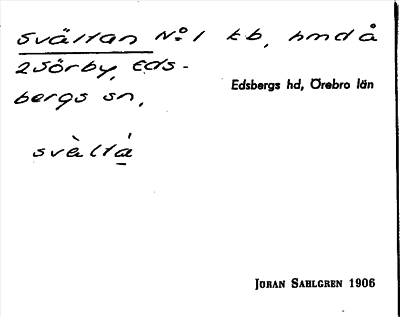 Svältan No 1 tb, hmd å
2 Sörby, Eds-
bergs sn,
Edsbergs hd, Örebro län
svὰltá
JÖRAN SAHLGREN 1906